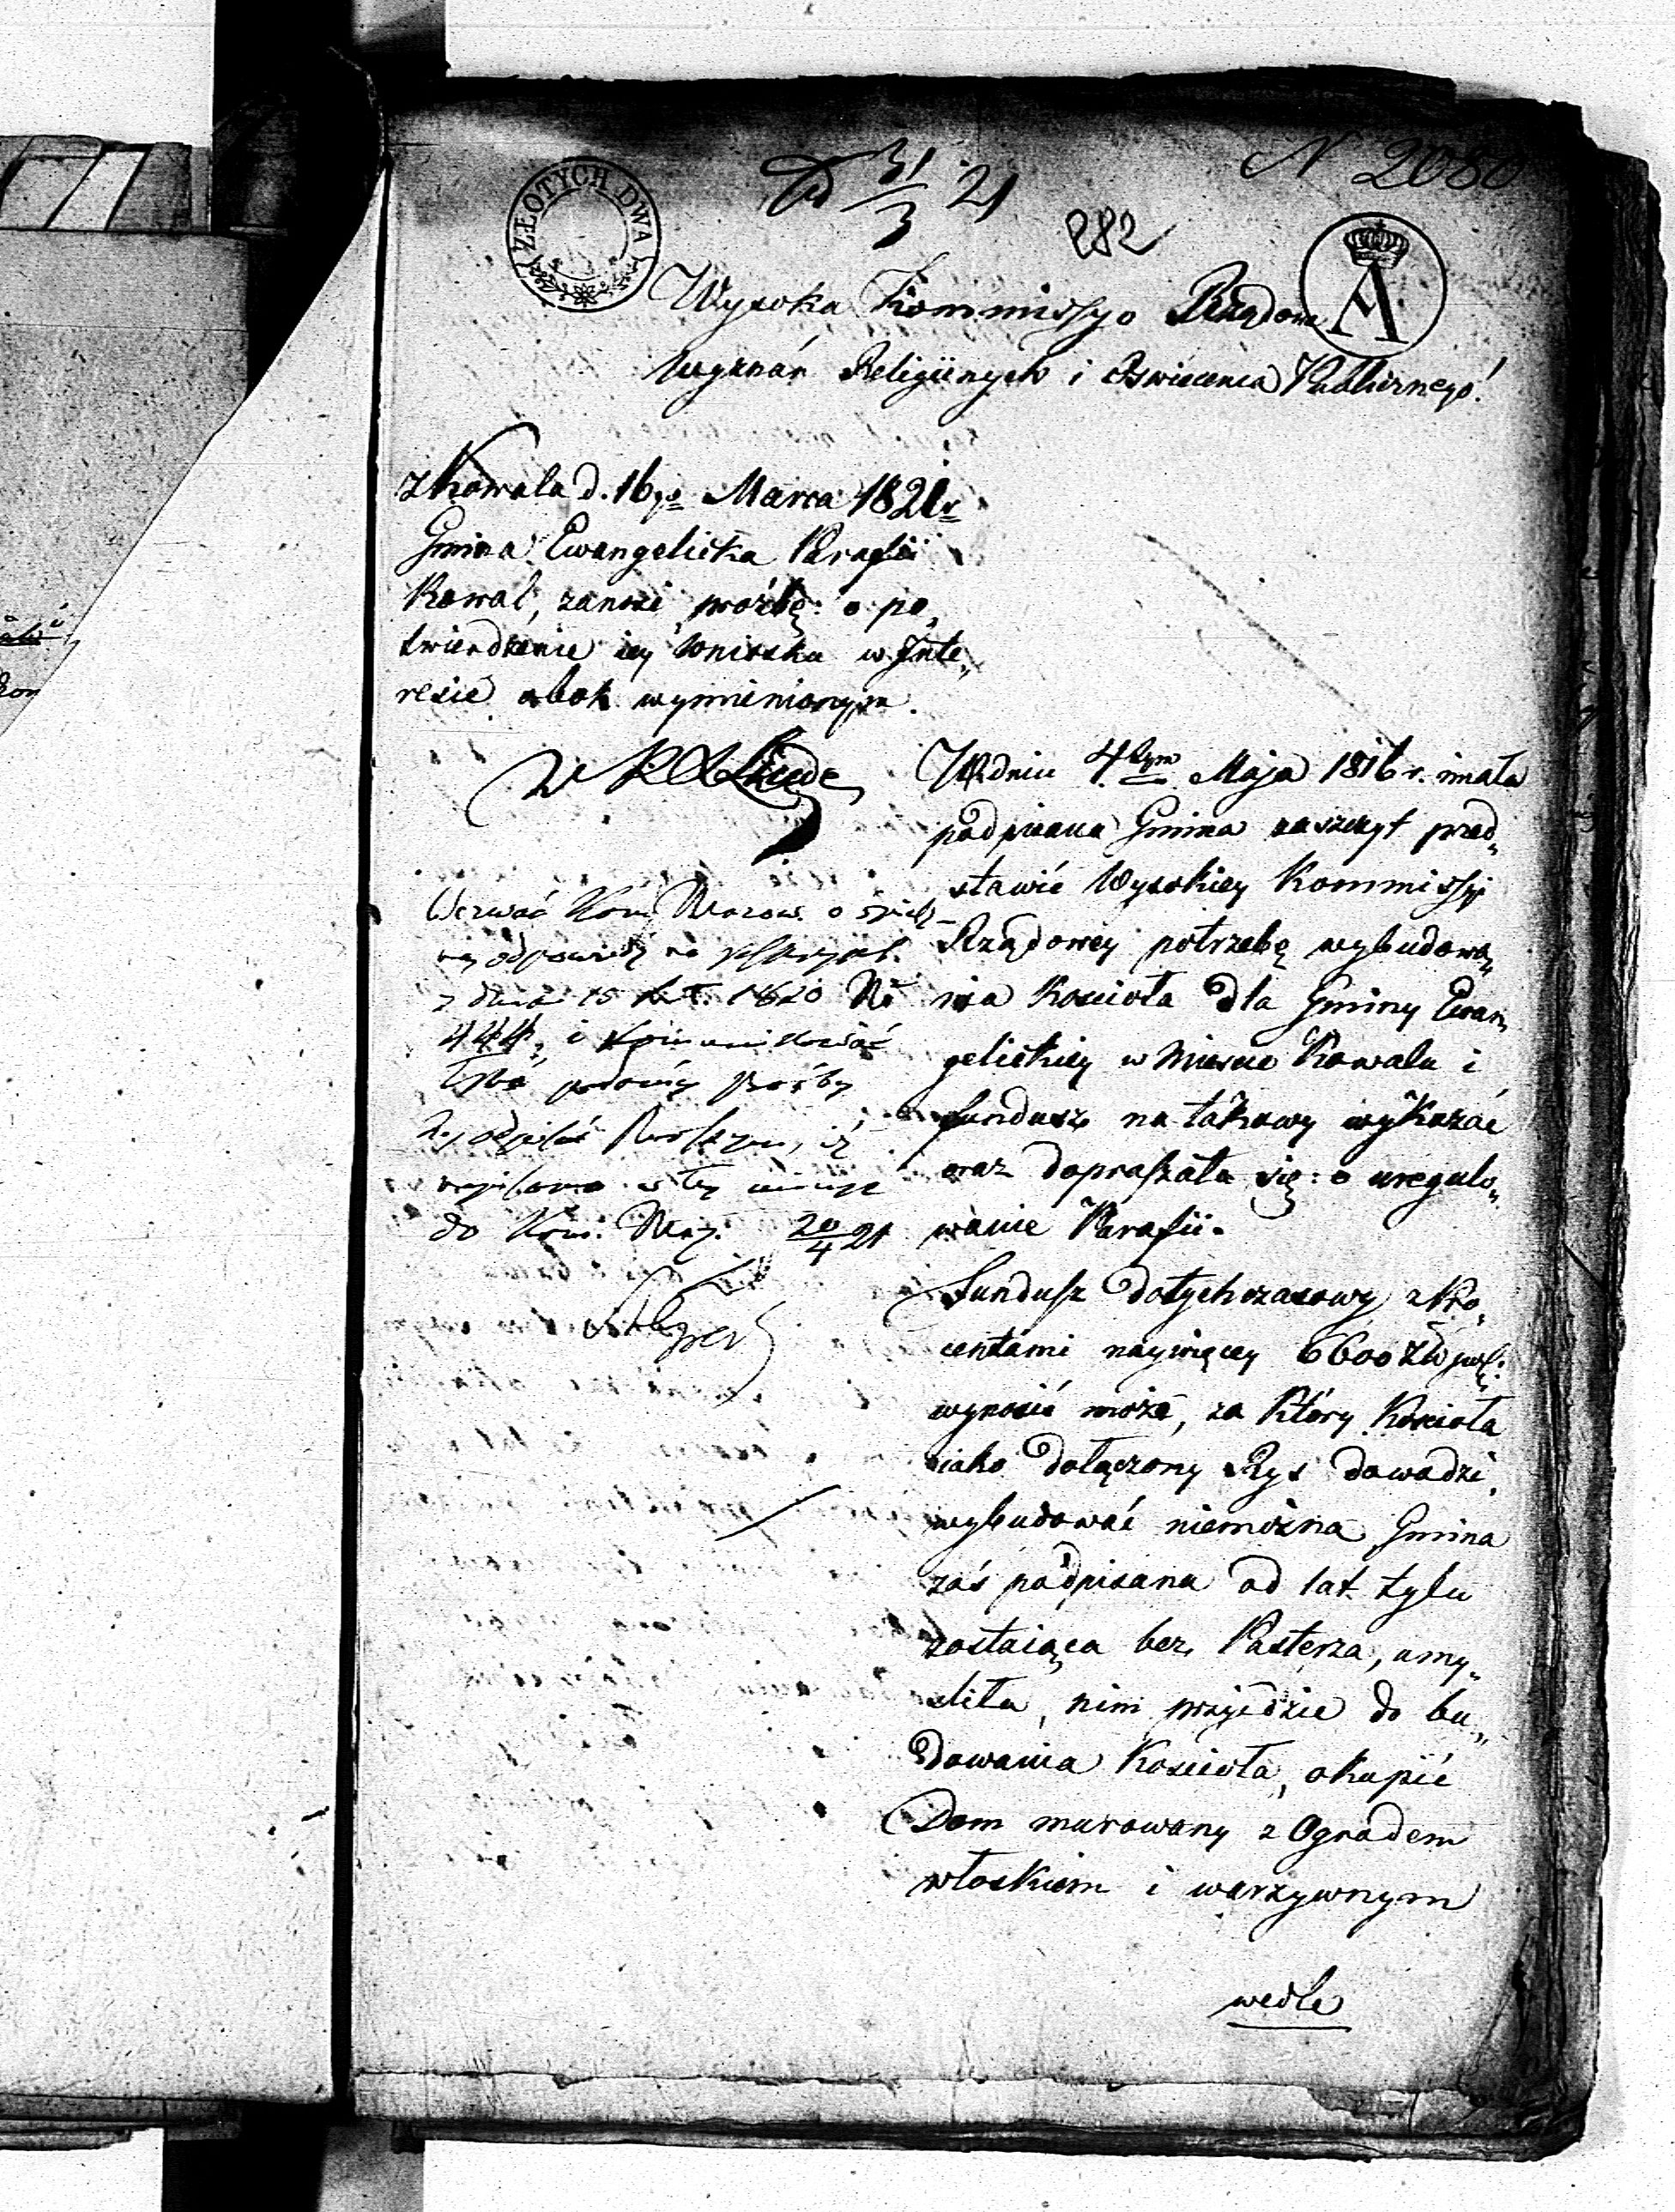 N 2080
31/3 21
282
ZŁOTYCH DWA
A
Wysoka Kommissyo Rządowa
Wyznań Religiinych i Oswiecenia Publicznego!
z Kowala d. 16go Marca 1821r
Gmina Ewangelicka Parafii
Kowal, zanosi prozbę: o po„
twierdzenie iey Wniosku w Inte„
resie obok wymienionym.
Wezwać Kom. Mazow. o
odpowiedz na
z dnia 15 1820 No
444, i
prośby
do Kom. Maz. 20/4 21
W dniu 4tym Maja 1816 r. miała
podpisana Gmina zaszczyt przed„
stawić Wysokiey Kommissyi
Rządowey potrzebę wybudowa„
nia Kościoła dla Gminy Ewan„
gelickiey w Miescie Kowalu i
fundusz na takowy wykazać
oraz dopraszała się: o uregulo„
wanie Parafii.
Fundusz dotychczasowy z Pro„
centami naywięcey 6600 Złł pol:
wynosić może, za który Kościoła
iako dołączony Rys dowodzi,
wybudować niemożna. Gmina
zaś podpisana od lat tylu
zostaiąca bez Pasterza, umy„
sliła, nim przyidzie do bu„
dowania Kościoła, okupić
Dom murowany z Ogrodem
włoskiem i warzywnym
wedle